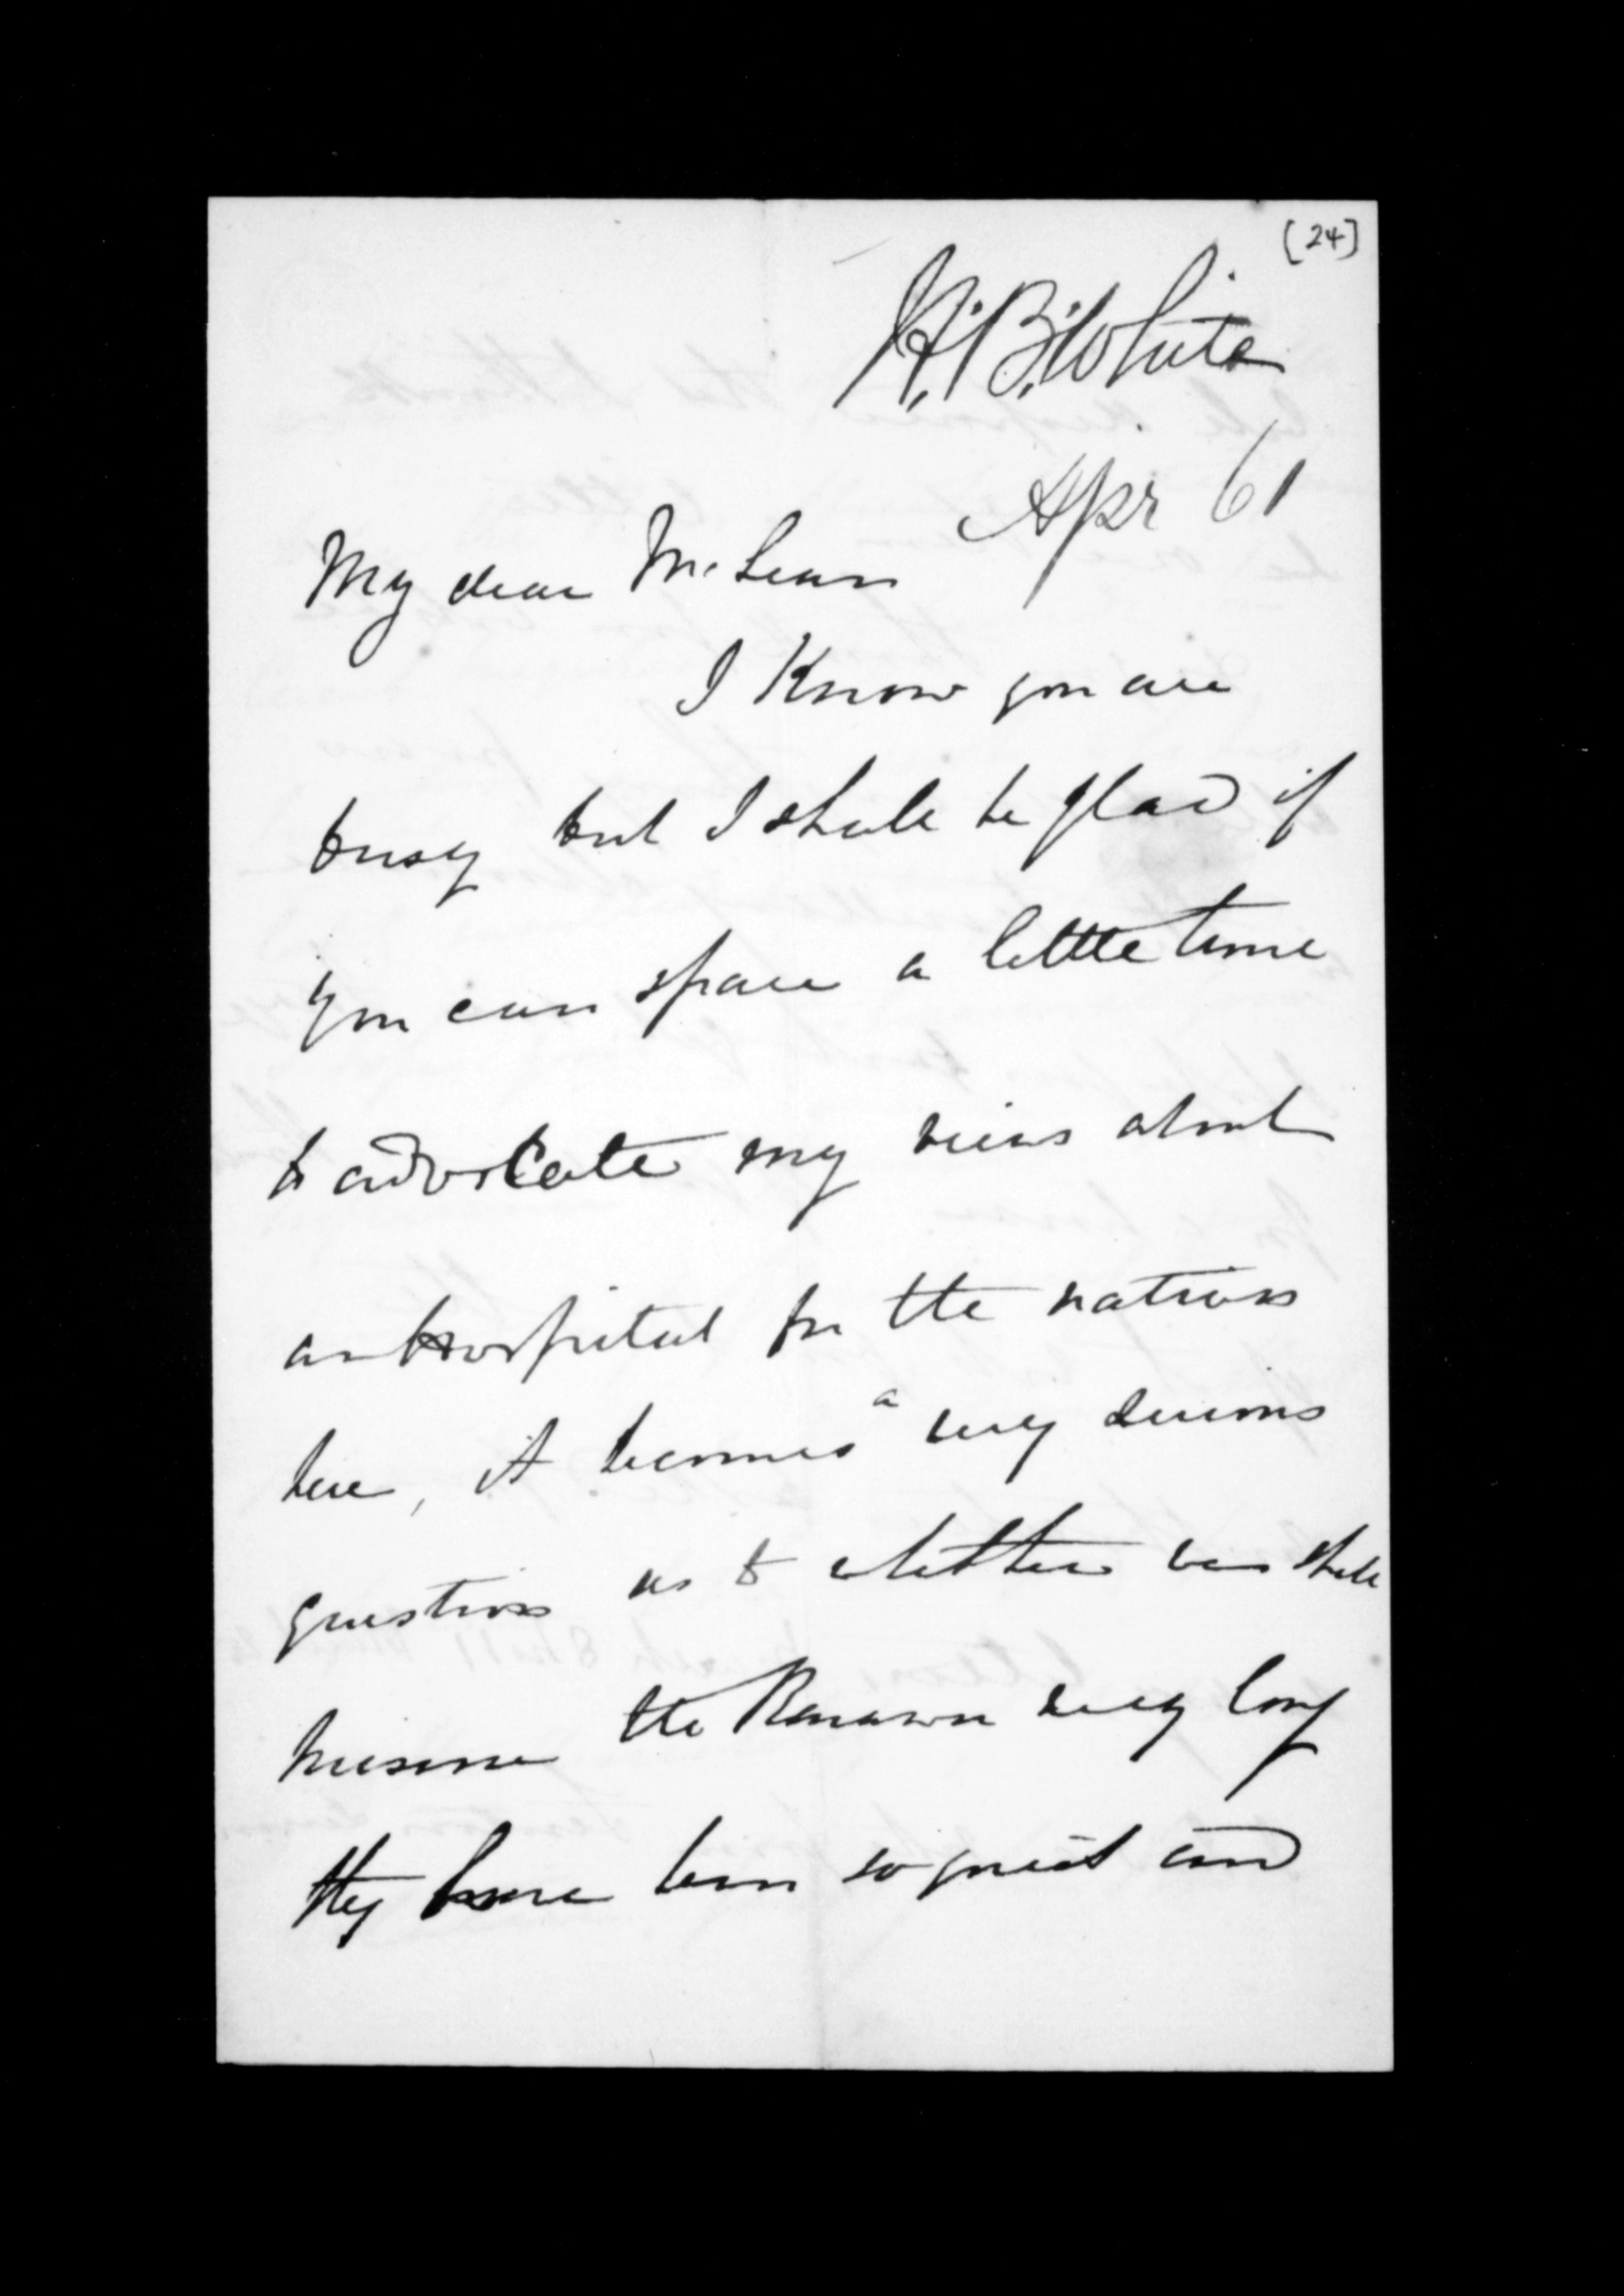 [24]
H. B. White
Apr 61
My dear McLean
I Know you are
busy but I shall be glad if
you can spare a little time
to advocate my views about
an hospital for the natives
here, it becomes a very serious
question as to whether we shall
the very long
they have been so quiet and